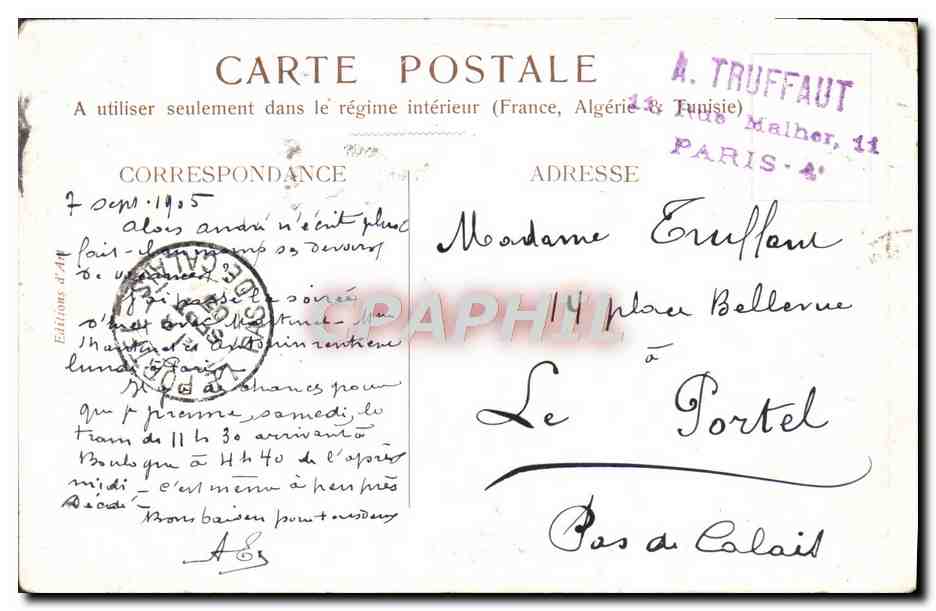 CARTE POSTALE
A utiliser seulement dans le régime intérieur (France, Algérie & Tunisie)
A. TRUFFAUT
11, Rue Malher, 11
PARIS-4e
CORRESPONDANCE
ADRESSE
7 sept. 1905
Alors andré n'écrit plus
fait-il au moins ses devoirs
de vacances.
J'ai passé la soirée
d'hier avec
et Antonin rentrent
lundi à Paris.
Il y a des chances pour
que je prenne, samedi, le
train de 11 h 30 arrivant à
Boulogne à 4 h 40 de l'après
midi - c'est même à peu près
Décidé
Bons baisers pour tous deux
Madame Truffaut
14 place Bellevue
à
Le Portel
Pas de Calais
Editions d'Art
LE PORTEL
PAS DE CALAIS
CPAPHIL